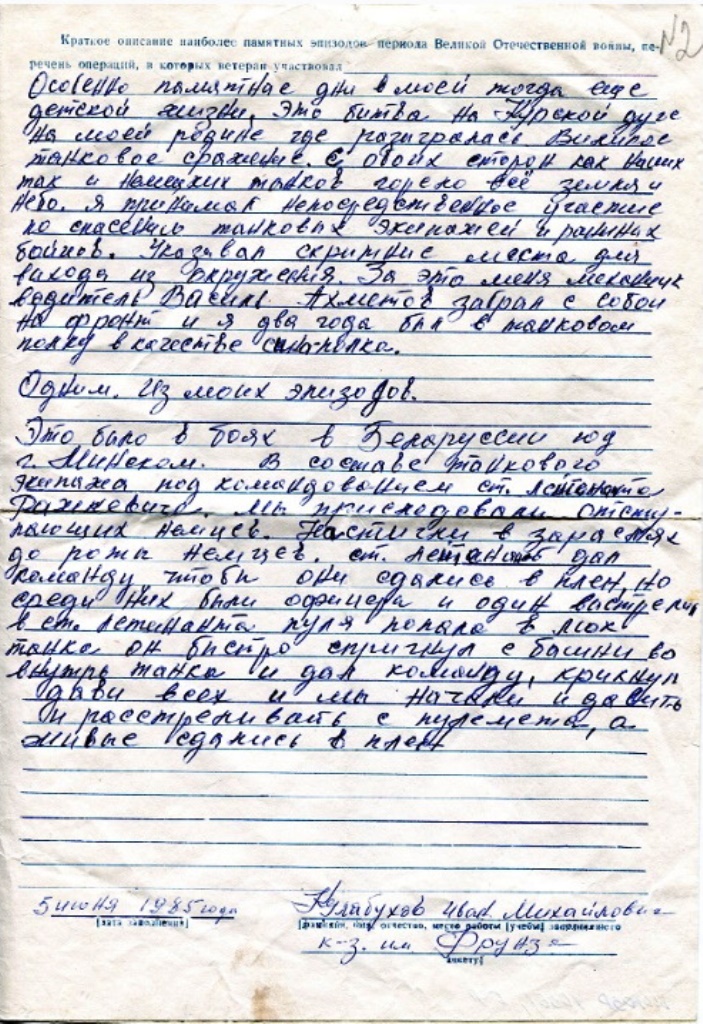 №2
Краткое описание наиболее памятных эпизодов периода Великой Отечественной войны, пе-
речень операций, в которых ветеран участвовал
Особенно памятные дни в моей тогда еще
детской жизни. Это битва на Курской дуге
на моей родине где разыгралась Великое
танковое сражение. С обоих сторон как наших
так и немецких танков горело всё земля и
небо. Я принимал непосредственное участие
по спасению танковых экипажей и раненых
бойцов. Указывал скритние места для
выхода из окружения. За это меня механик
водитель Василь Ахметов забрал с собой
на фронт и я два года был в танковом
полку в качестве сына-полка.
Одним. Из моих эпизодов.
Это было в боях в Белоруссии под
г. Минском. В составе танкового
экипажа под командованием ст. летенанта
мы приследовали отсту-
пающих немцев. Настигли в зарослях
до роты немцев. ст. летенант дал
команду чтобы они сдались в плен, но
среди них были офицера и один выстрелил
в ст. летенанта пуля попала в люк
танка он быстро спригнул с башни во
внутрь танка и дал команду, крикнул
дави всех и мы начали и давить
и расстреливать с пулемета, а
живые сдались в плен
5 июня 1985 года
Кулабухов Иван Михайлович
[дата заполнения]
[фамилия, имя, отчество, место работы [учебы] заполнившего
к-з. им Фрунзе
анкету]